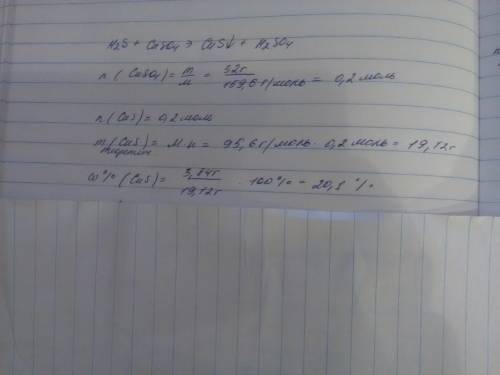 H2S + CuSO4 → CuS↓ + H2SO4
n (CuSO4) = m/M = 32г/159,6 г/моль = 0,2 моль
n (CuS) = 0,2 моль
m (CuS) = M·n = 95,6 г/моль · 0,2 моль = 19,12г
ω% (CuS) = 3,84г/19,12г · 100% = 20,1 %